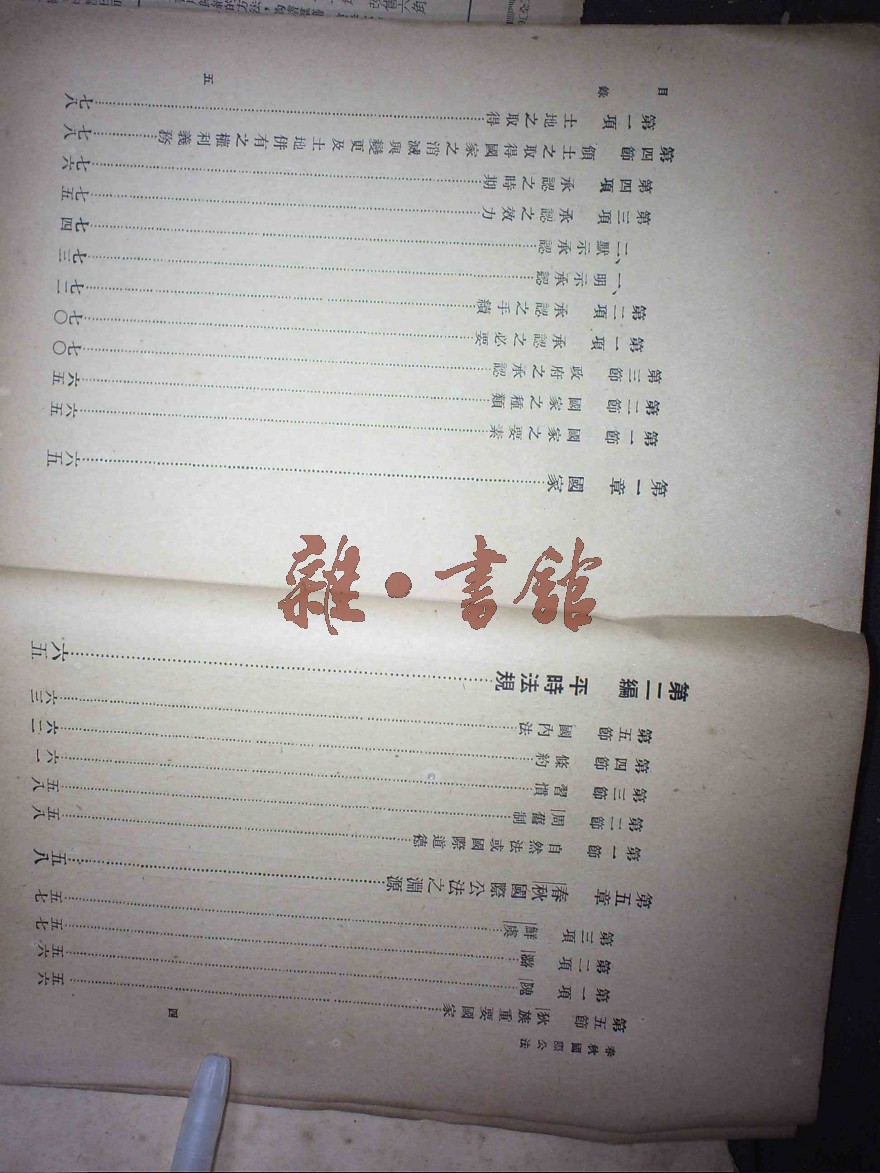 春秋國際公法
四
第五節 狄族重要國家……五六
第一項 隗……五六
第二項 潞……五七
第三項 鮮虞……五七
第五章 春秋國際公法之淵源……五八
第一節 自然法或國際道德……五八
第二節 周舊制……五八
第三節 習慣……六一
第四節 條約……六二
第五節 國內法……六三
第二編 平時法規……六五
第一章 國家……六五
第一節 國家之要素……六五
第二節 國家之種類……六五
第三節 政府之承認……七〇
第一項 承認之必要……七〇
第二項 承認之手續……七二
一、明示承認……七三
二、默示承認……七四
第三項 承認之效力……七五
第四項 承認之時期……七六
第四節 領土之取得國家之消滅與變更及土地併有之權利義務……七八
第一項 土地之取得……七八
目錄
五
雜·書館